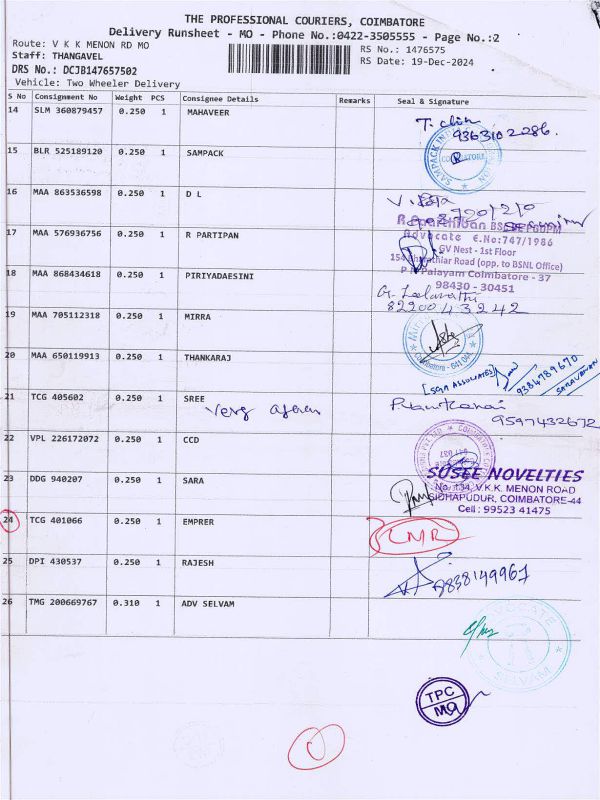 THE PROFESSIONAL COURIERS, COIMBATORE
Delivery Runsheet - MO - Phone No.:0422-3505555 - Page No.:2
Route: V K K MENON RD MO
RS No.: 1476575
Staff: THANGAVEL
RS Date: 19-Dec-2024
DRS No.: DCJB147657502
Vehicle: Two Wheeler Delivery
S No Consignment No Weight PCS Consignee Details Remarks Seal & Signature
14 SLM 360879457 0.250 1 MAHAVEER
9363102286.
15 BLR 525189120 0.250 1 SAMPACK
COIMBATORE
16 MAA 863536598 0.250 1 D L
17 MAA 576936756 0.250 1 R PARTIPAN
Advocate E.No:747/1986
GV Nest - 1st Floor
Road (opp. to BSNL Office)
Palayam Coimbatore - 37
98430 - 30451
18 MAA 868434618 0.250 1 PIRIYADAESINI
8220043242
19 MAA 705112318 0.250 1 MIRRA
Coimbatore - 641 044
20 MAA 650119913 0.250 1 THANKARAJ
[SGA ASSOCIATES]
9384789670
SARAVANAN
21 TCG 405602 0.250 1 SREE
9597432672
22 VPL 226172072 0.250 1 CCD
23 DDG 940207 0.250 1 SARA
SUSEE NOVELTIES
No. 134, V.K.K. MENON ROAD
SIDHAPUDUR, COIMBATORE-44
Cell : 99523 41475
24 TCG 401066 0.250 1 EMPRER
LMR
25 DPI 430537 0.250 1 RAJESH
9838149961
26 TMG 200669767 0.310 1 ADV SELVAM
ADVOCATE
SELVAM
TPC